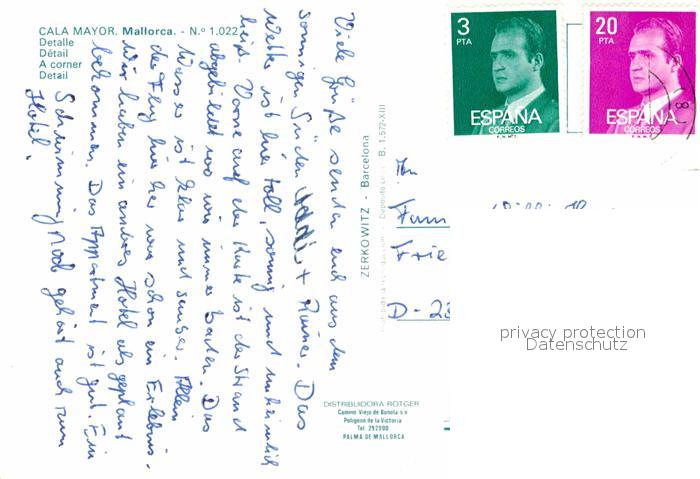 CALA MAYOR. Mallorca. - N.º 1.022
Detalle
Détail
A corner
Detail
Viele Grüße senden euch aus dem
sonnigen Süden + Rainer. Das
Wetter ist hier toll, sonnig und unheimlich
heiß. Vorne auf der Karte ist der Strand
abgebildet wo wir immer baden. Das
Wasser ist klar und sauber. Allein
der Flug hierher war schon ein Erlebnis.
Wir haben ein anderes Hotel als geplant
bekommen. Das Appartment ist gut. Ein
Swimming Pool gehört auch zum
Hotel.
ZERKOWITZ - Barcelona
B. 1.572-XIII
DISTRIBUIDORA ROTGER
Camino Viejo de Buñola s n
Polígono de la Victoria
Tel. 292900
PALMA DE MALLORCA
3
PTA
ESPAÑA
CORREOS
20
PTA
ESPAÑA
CORREOS
An
Fam
Frie
D-23
privacy protection
Datenschutz